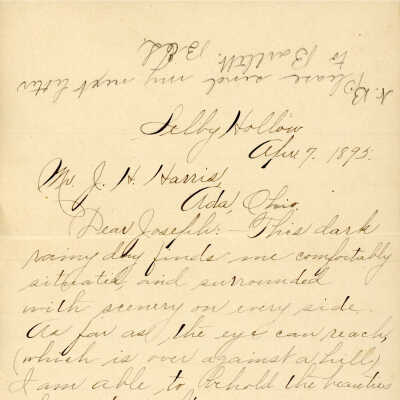 N.B. Please send my next letter
to Bartlett. Bldg.
Selby Hollow
Apr. 7. 1895.
Mr. J. H. Harris,
Ada, Ohio.
Dear Joseph:- This dark
rainy day finds me comfortably
situated, and surrounded
with scenery on every side.
As far as the eye can reach,
(which is over against a hill)
I am able to behold the beauties